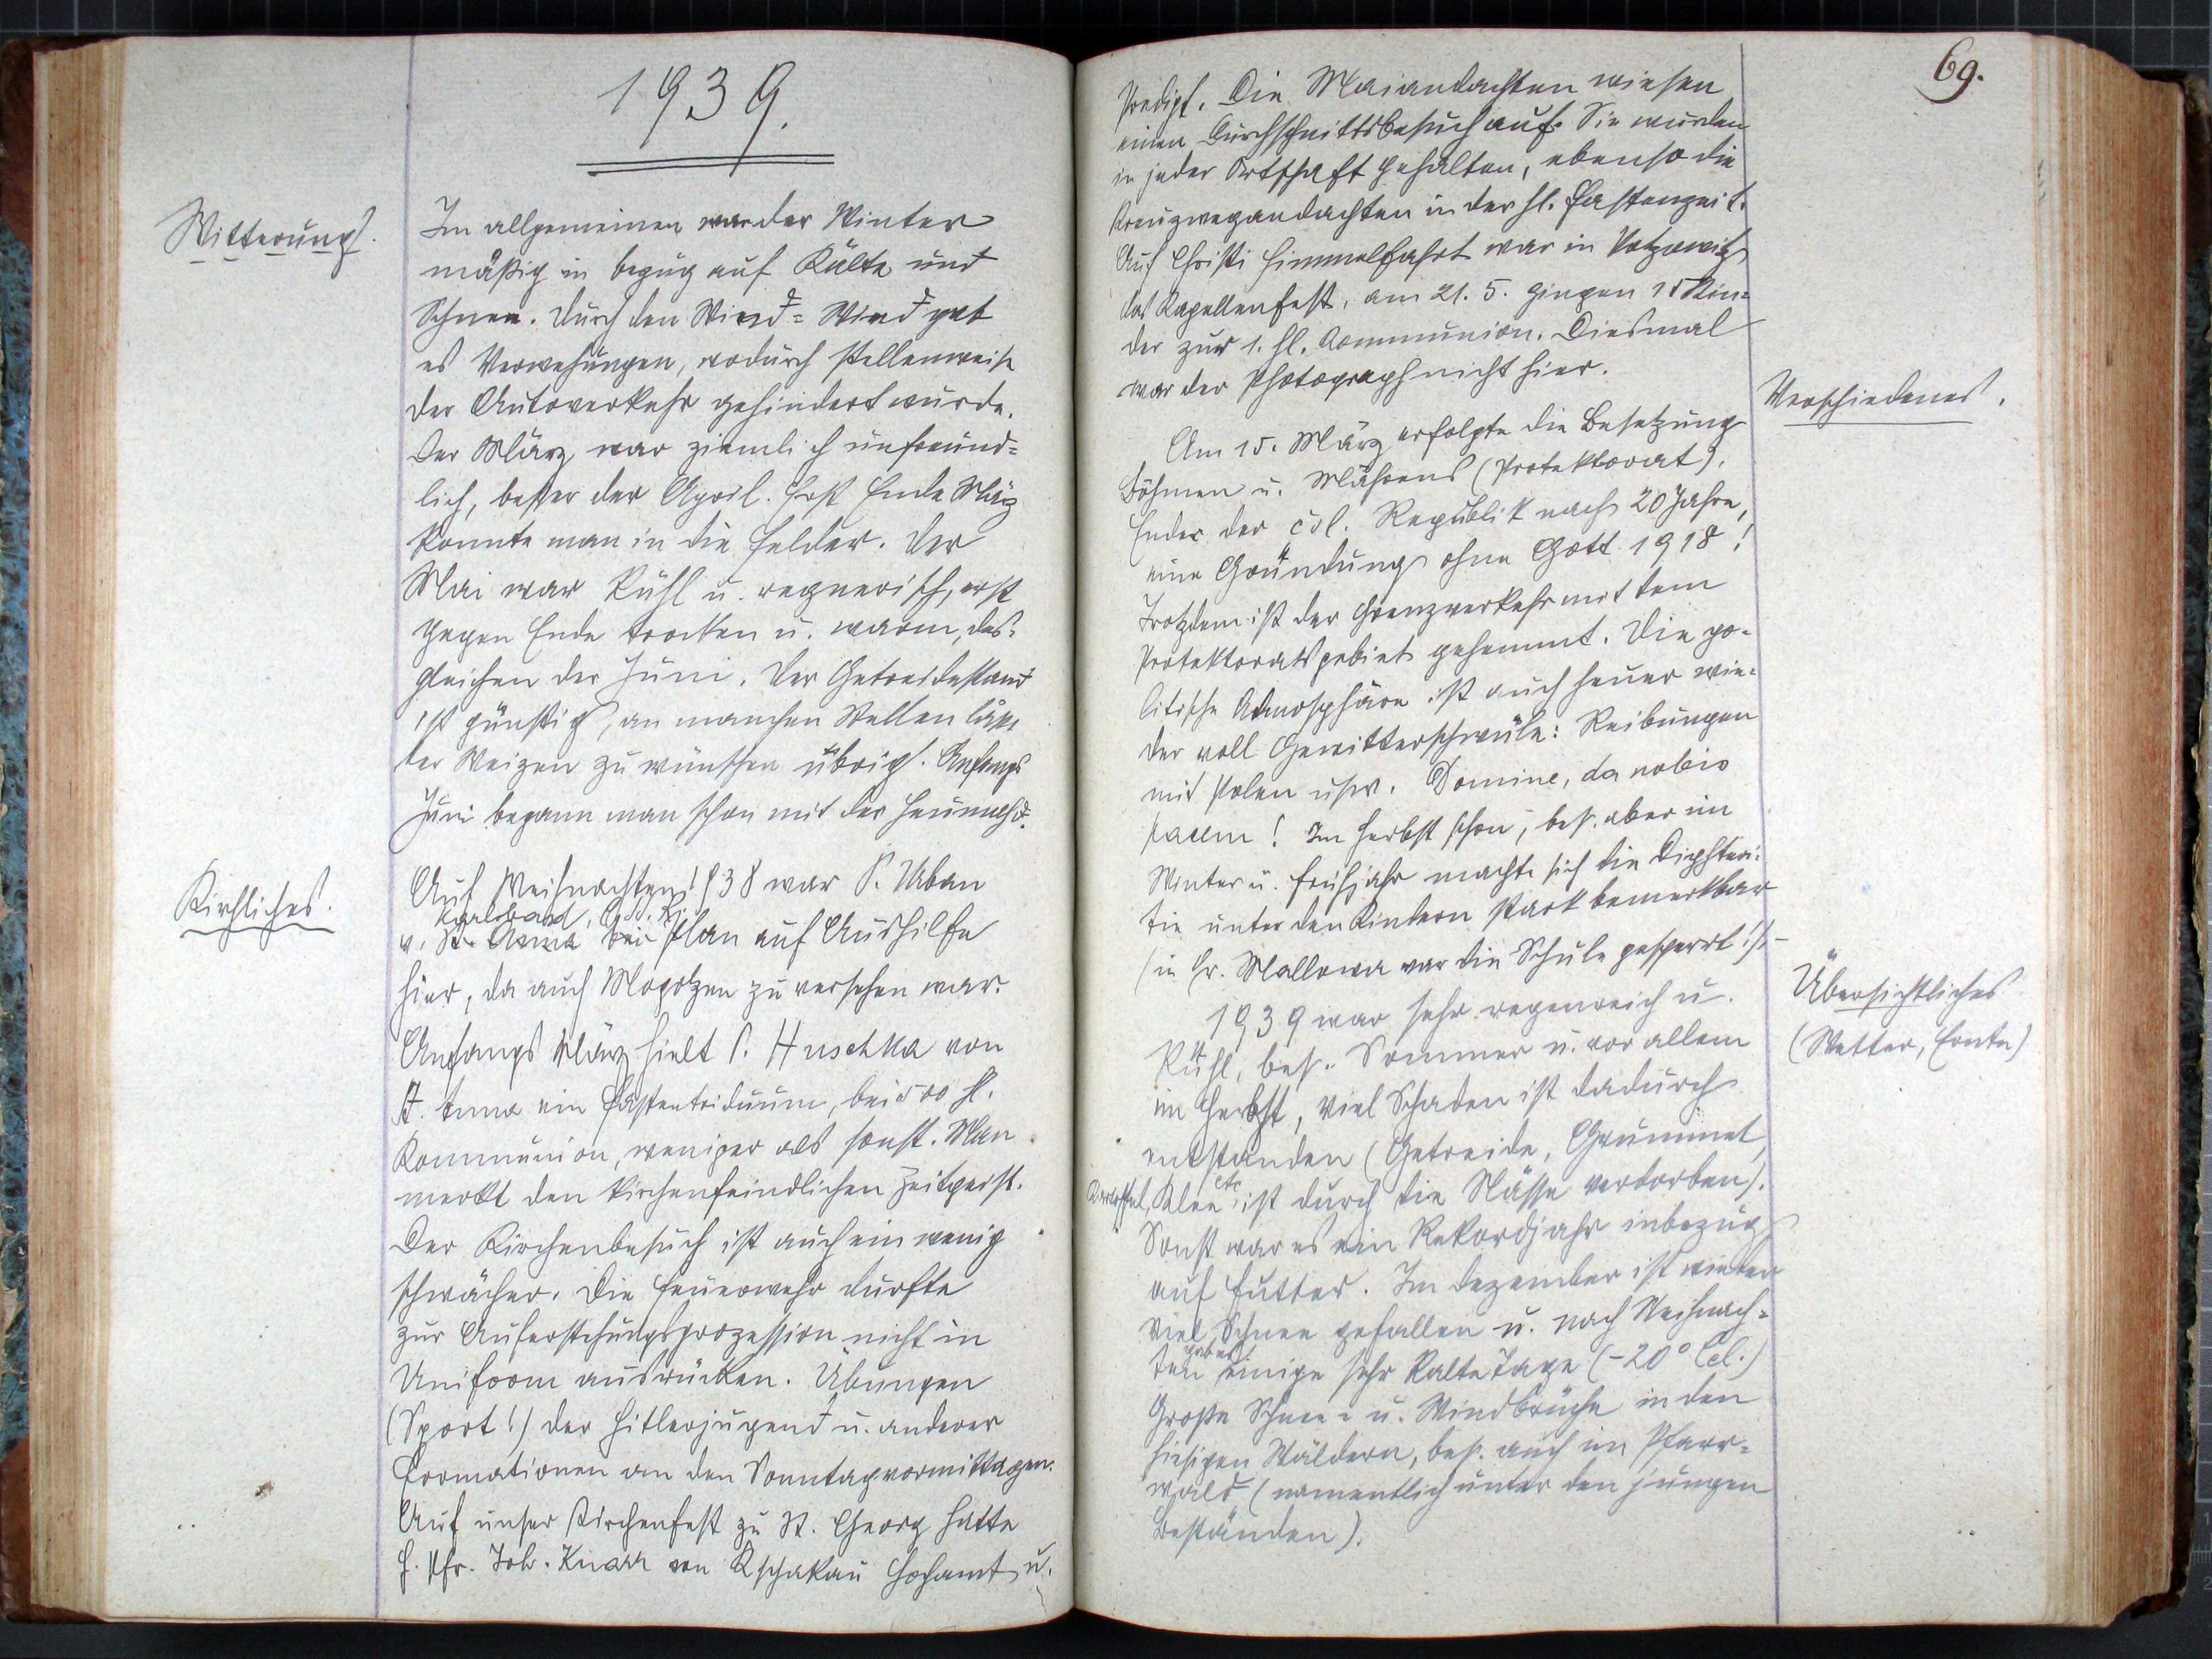 1939.
Witterung.
Im allgemeinen war der Winter
mäßig in bezug auf Kälte und
Schnee. Durch den Wind gab
es Verwehungen, wodurch stellenweise
der Autoverkehr gehindert wurde.
Der März war ziemlich unfreund-
lich, besser der April. Erst Ende März
konnte man in die Felder. Der
Mai war kühl u. regnerisch, erst
gegen Ende trocken u. warm, des-
gleichen der Juni. Der Getreidestand
ist günstig, an manchen Stellen läßt
der Weizen zu wünschen übrig. Anfangs
Juni begann man schon mit der Heumahd.
Kirchliches.
Auf Weihnachten 1938 war P. Urban
Karlsbad,
v. St. Anna bei Plan auf Aushilfe
hier, da auch Mogolzen zu versehen war.
Anfangs März hielt P. Huschka von
St. Anna ein Fastentriduum, bei 500 hl.
Kommunion, weniger als sonst. Man
merkt den kirchenfeindlichen Zeitgeist.
Der Kirchenbesuch ist auch ein wenig
schwächer. Die Feuerwehr durfte
zur Auferstehungsprozession nicht in
Uniform ausrücken. Übungen
(Sport!) der Hitlerjugend u. anderer
Formationen an den Sonntagvormittagen.
Auf unser Kirchenfest zu St. Georg hatte
H. Pfr. Joh. Knarr von Kschakau Hochamt u.
69.
Predigt. Die Maiandachten wiesen
einen Durchschnittsbesuch auf. Sie wurden
in jeder Ortschaft gehalten, ebenso die
Kreuzwegandachten in der hl. Fastenzeit.
Auf Christi Himmelfahrt war in Potzowitz
das Kapellenfest, am 21. 5. gingen 15 Kin-
der zur 1. hl. Kommunion. Diesmal
war der Photograph nicht hier.
Verschiedenes.
Am 15. März erfolgte die Besetzung
Böhmen u. Mährens (Protektorat).
Ende der čsl. Republik nach 20 Jahre,
eine Gründung ohne Gott 1918!
Trotzdem ist der Grenzverkehr mit dem
Protektoratsgebiet gehemmt. Die po-
litische Atmosphäre ist auch heuer wie-
der voll Gewitterschwüle: Reibungen
mit Polen usw. Domine, da nobis
pacem! Im Herbst schon, bes. aber im
Winter u. Frühjahr machte sich die Diphteri-
tie unter den Kindern stark bemerkbar
(in Gr. Mallowa war die Schule gesperrt!). -
Übersichtliches
(Wetter, Ernte)
1939 war sehr regenreich u.
kühl, bes. Sommer u. vor allem
im Herbst, viel Schaden ist dadurch
entstanden (Getreide, Grummet,
Kartoffel, Klee etc ist durch die Nässe verdorben).
Sonst war es ein Rekordjahr inbezug
auf Futter. Im Dezember ist wieder
viel Schnee gefallen u. nach Weihnach-
ten gab es einige sehr kalte Tage (-20° Cel.)
Große Schnee- u. Windbrüche in den
hiesigen Wäldern, bes. auch im Pfarr-
wald (namentlich unter den jungen
Beständen).